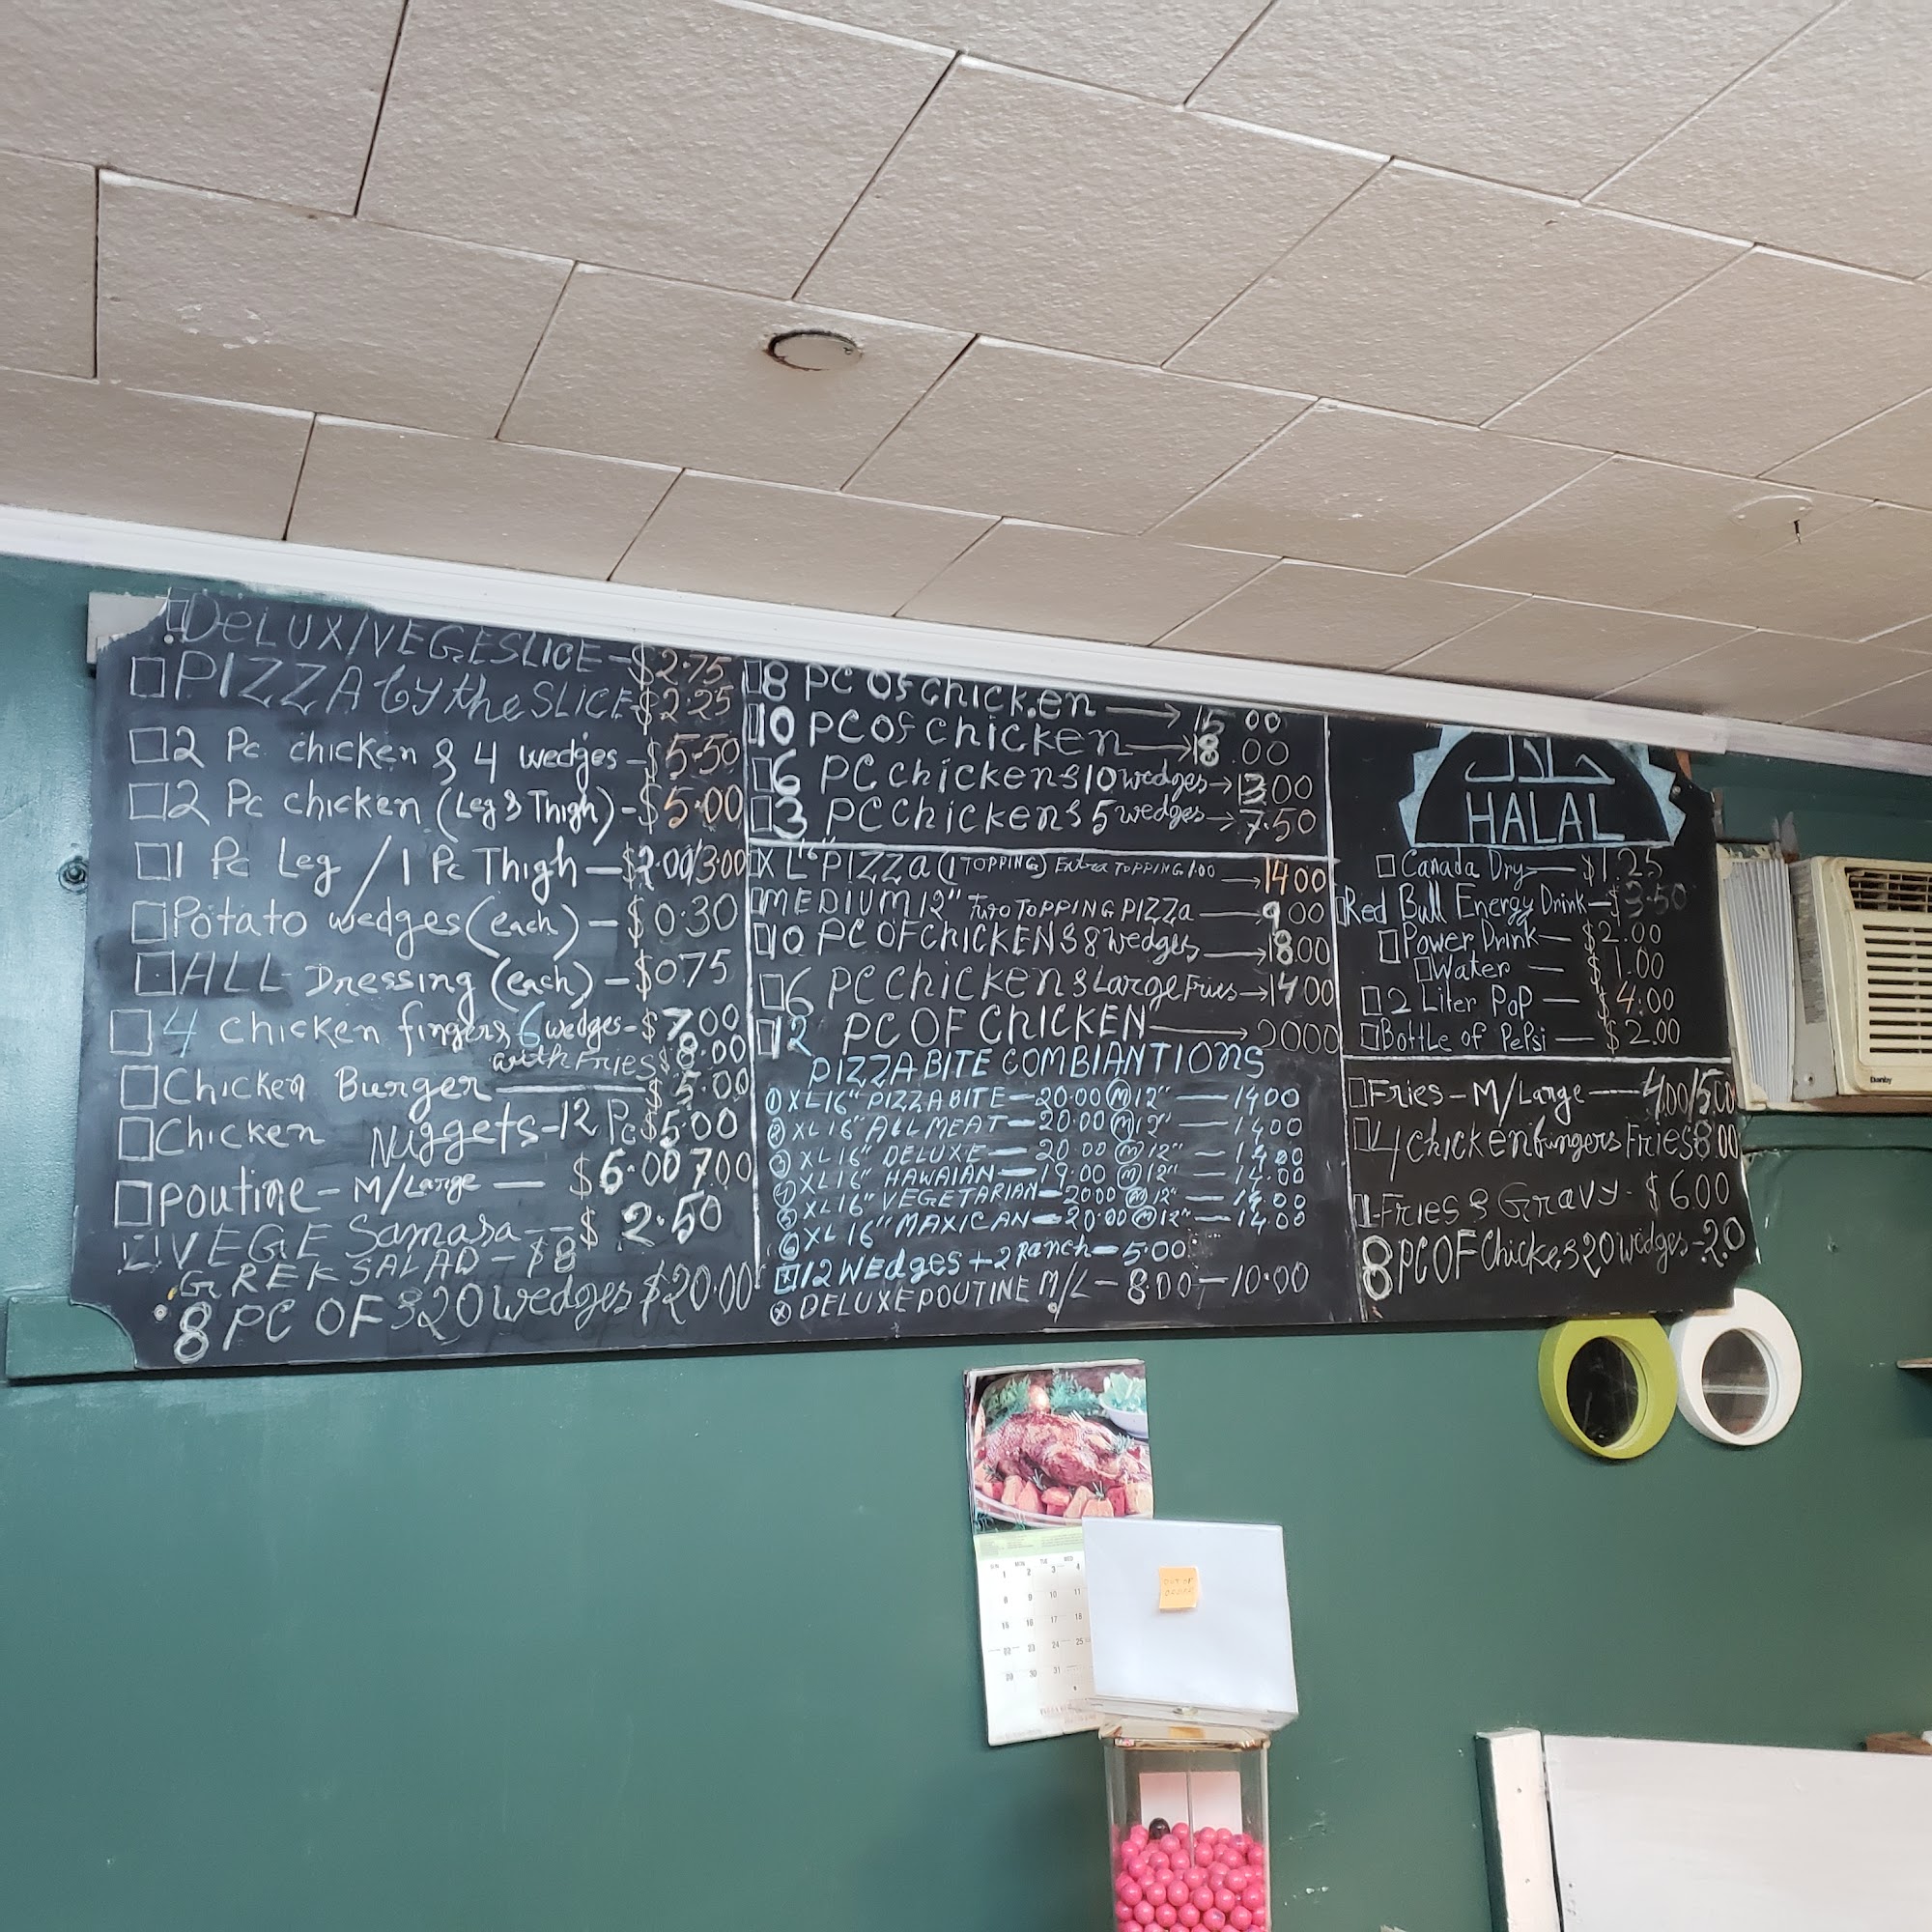 DeLUX/VEGESLICE-$2.75
PIZZA by the SLICE-$2.25
2 Pc chicken & 4 wedges-$5.50
2 Pc chicken (Leg & Thigh)-$5.00
1 Pc Leg / 1 Pc Thigh-$2.00/3.00
Potato wedges (each)-$0.30
ALL Dressing (each)-$0.75
4 chicken fingers 6 wedges-$7.00
with Fries $8.00
Chicken Burger — $5.00
Chicken Nuggets-12 Pc $5.00
poutine-M/Large — $6.00 7.00
VEGE Samasa--$2.50
GREK SALAD-$8
8 PC OF & 20 wedges $20.00
8 PC OF chicken → 15 00
10 PC OF chicken → 18.00
6 PC chicken & 10 wedges → 13.00
3 PC chicken & 5 wedges → 7.50
XL 16" PIZZA (1 TOPPING) Extra TOPPING 1.00 → 14 00
MEDIUM 12" Two TOPPING PIZZa → 9 00
10 PC OF CHICKEN & 8 wedges → 18.00
6 PC chicken & Large Fries → 14 00
12 PC OF CHICKEN → 2000
PIZZA BITE COMBIANTIONS
① XL 16" PIZZA BITE — 20.00 Ⓜ 12" — 1400
② XL 16" ALL MEAT — 20.00 Ⓜ 12" — 14.00
③ XL 16" DELUXE — 20.00 Ⓜ 12" — 14.00
④ XL 16" HAWAIAN — 19.00 Ⓜ 12" — 14.00
⑤ XL 16" VEGETARIAN — 2000 Ⓜ 12" — 14.00
⑥ XL 16" MAXICAN — 20.00 Ⓜ 12" — 14.00
12 Wedges + 2 Ranch — 5.00
DELUXE POUTINE M/L — 8.00 — 10.00
حلال
HALAL
Canada Dry — $1.25
Red Bull Energy Drink — $3.50
Power Drink — $2.00
Water — $1.00
2 Liter Pop — $4.00
Bottle of Pepsi — $2.00
Fries - M/Large — 4.00/5.00
4 chicken fungers Fries 8.00
Fries & Gravy - $6.00
8 PC OF Chicke & 20 wedges - 20
Danby
OUT OF
ORDER
SUN MON TUE WED
1 2 3 4
8 9 10 11
15 16 17 18
22 23 24 25
29 30 31